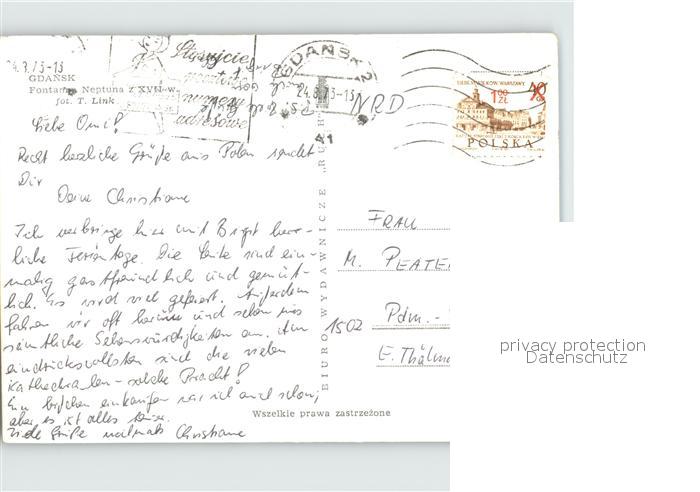 24.3.73-13
GDAŃSK
Fontanna Neptuna z XVII w.
fot. T. Link
Stosujcie
pocztowe
numery
adresowe
GDAŃSK 2
24.3.73-13
NRD
41
SIEDEM WIEKÓW WARSZAWY
1,00 ZŁ
40
POLSKA
Liebe Omi!
Recht herzliche Grüße aus Polen sendet
Dir
Deine Christiane
Ich verbringe hier mit Birgit herr-
liche Ferientage. Die Leute sind ein-
malig gastfreundlich und gemüt-
lich. Es wird viel gefeiert. Außerdem
fahren wir oft herum und sehen uns
sämtliche Sehenswürdigkeiten an. Am
eindrucksvollsten sind die vielen
Kathedralen - solche Pracht!
Ein bißchen einkaufen war ich auch schon,
aber es ist alles teuer.
Viele Grüße nochmals Christiane
BIURO WYDAWNICZE „RUCH"
FRAU
M. PEATE
1502 Pdm.-
E. Thälm
Wszelkie prawa zastrzeżone
privacy protection
Datenschutz